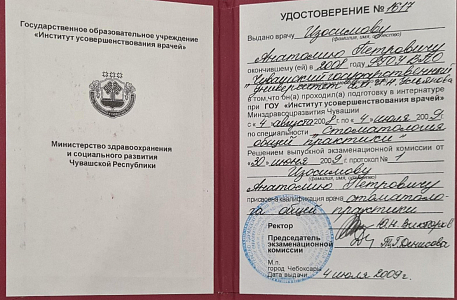 Государственное образовательное учреждение
«Институт усовершенствования врачей»
Министерство здравоохранения
и социального развития
Чувашской Республики
УДОСТОВЕРЕНИЕ № 1617
Выдано врачу Изосимову
(фамилия, имя, отчество)
Анатолию Петровичу
окончившему (ей) в 2008 году ФГОУ ВПО
"Чувашский государственный
университет им. И.Н. Ульянова
в том,что он(а) проходил(а) подготовку в интернатуре
при ГОУ «Институт усовершенствования врачей»
Минздравсоцразвития Чувашии
с «4» августа 2008 г. по «4» июля 2009 г.
по специальности "Стоматология
общей практики"
Решением выпускной экзаменационной комиссии от
«30» июня 2009 г. протокол № 1
Изосимову
(фамилия, имя, отчество)
Анатолию Петровичу
присвоена квалификация врача стоматоло-
га общей практики
Ректор
Председатель
экзаменационной
комиссии Т.Г.Денисова
М.п.
город Чебоксары 4 июля 2009г.